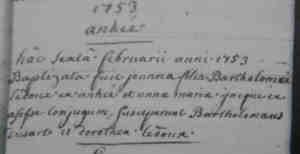 1753
anhée
hâc sextâ februarii anni 1753
Baptizata fuit joanna filia Bartholomæi
Ledoux ex anhée et anna maria jacque ex
conjugum, susceperunt Bartholomæus
et dorothea Ledoux